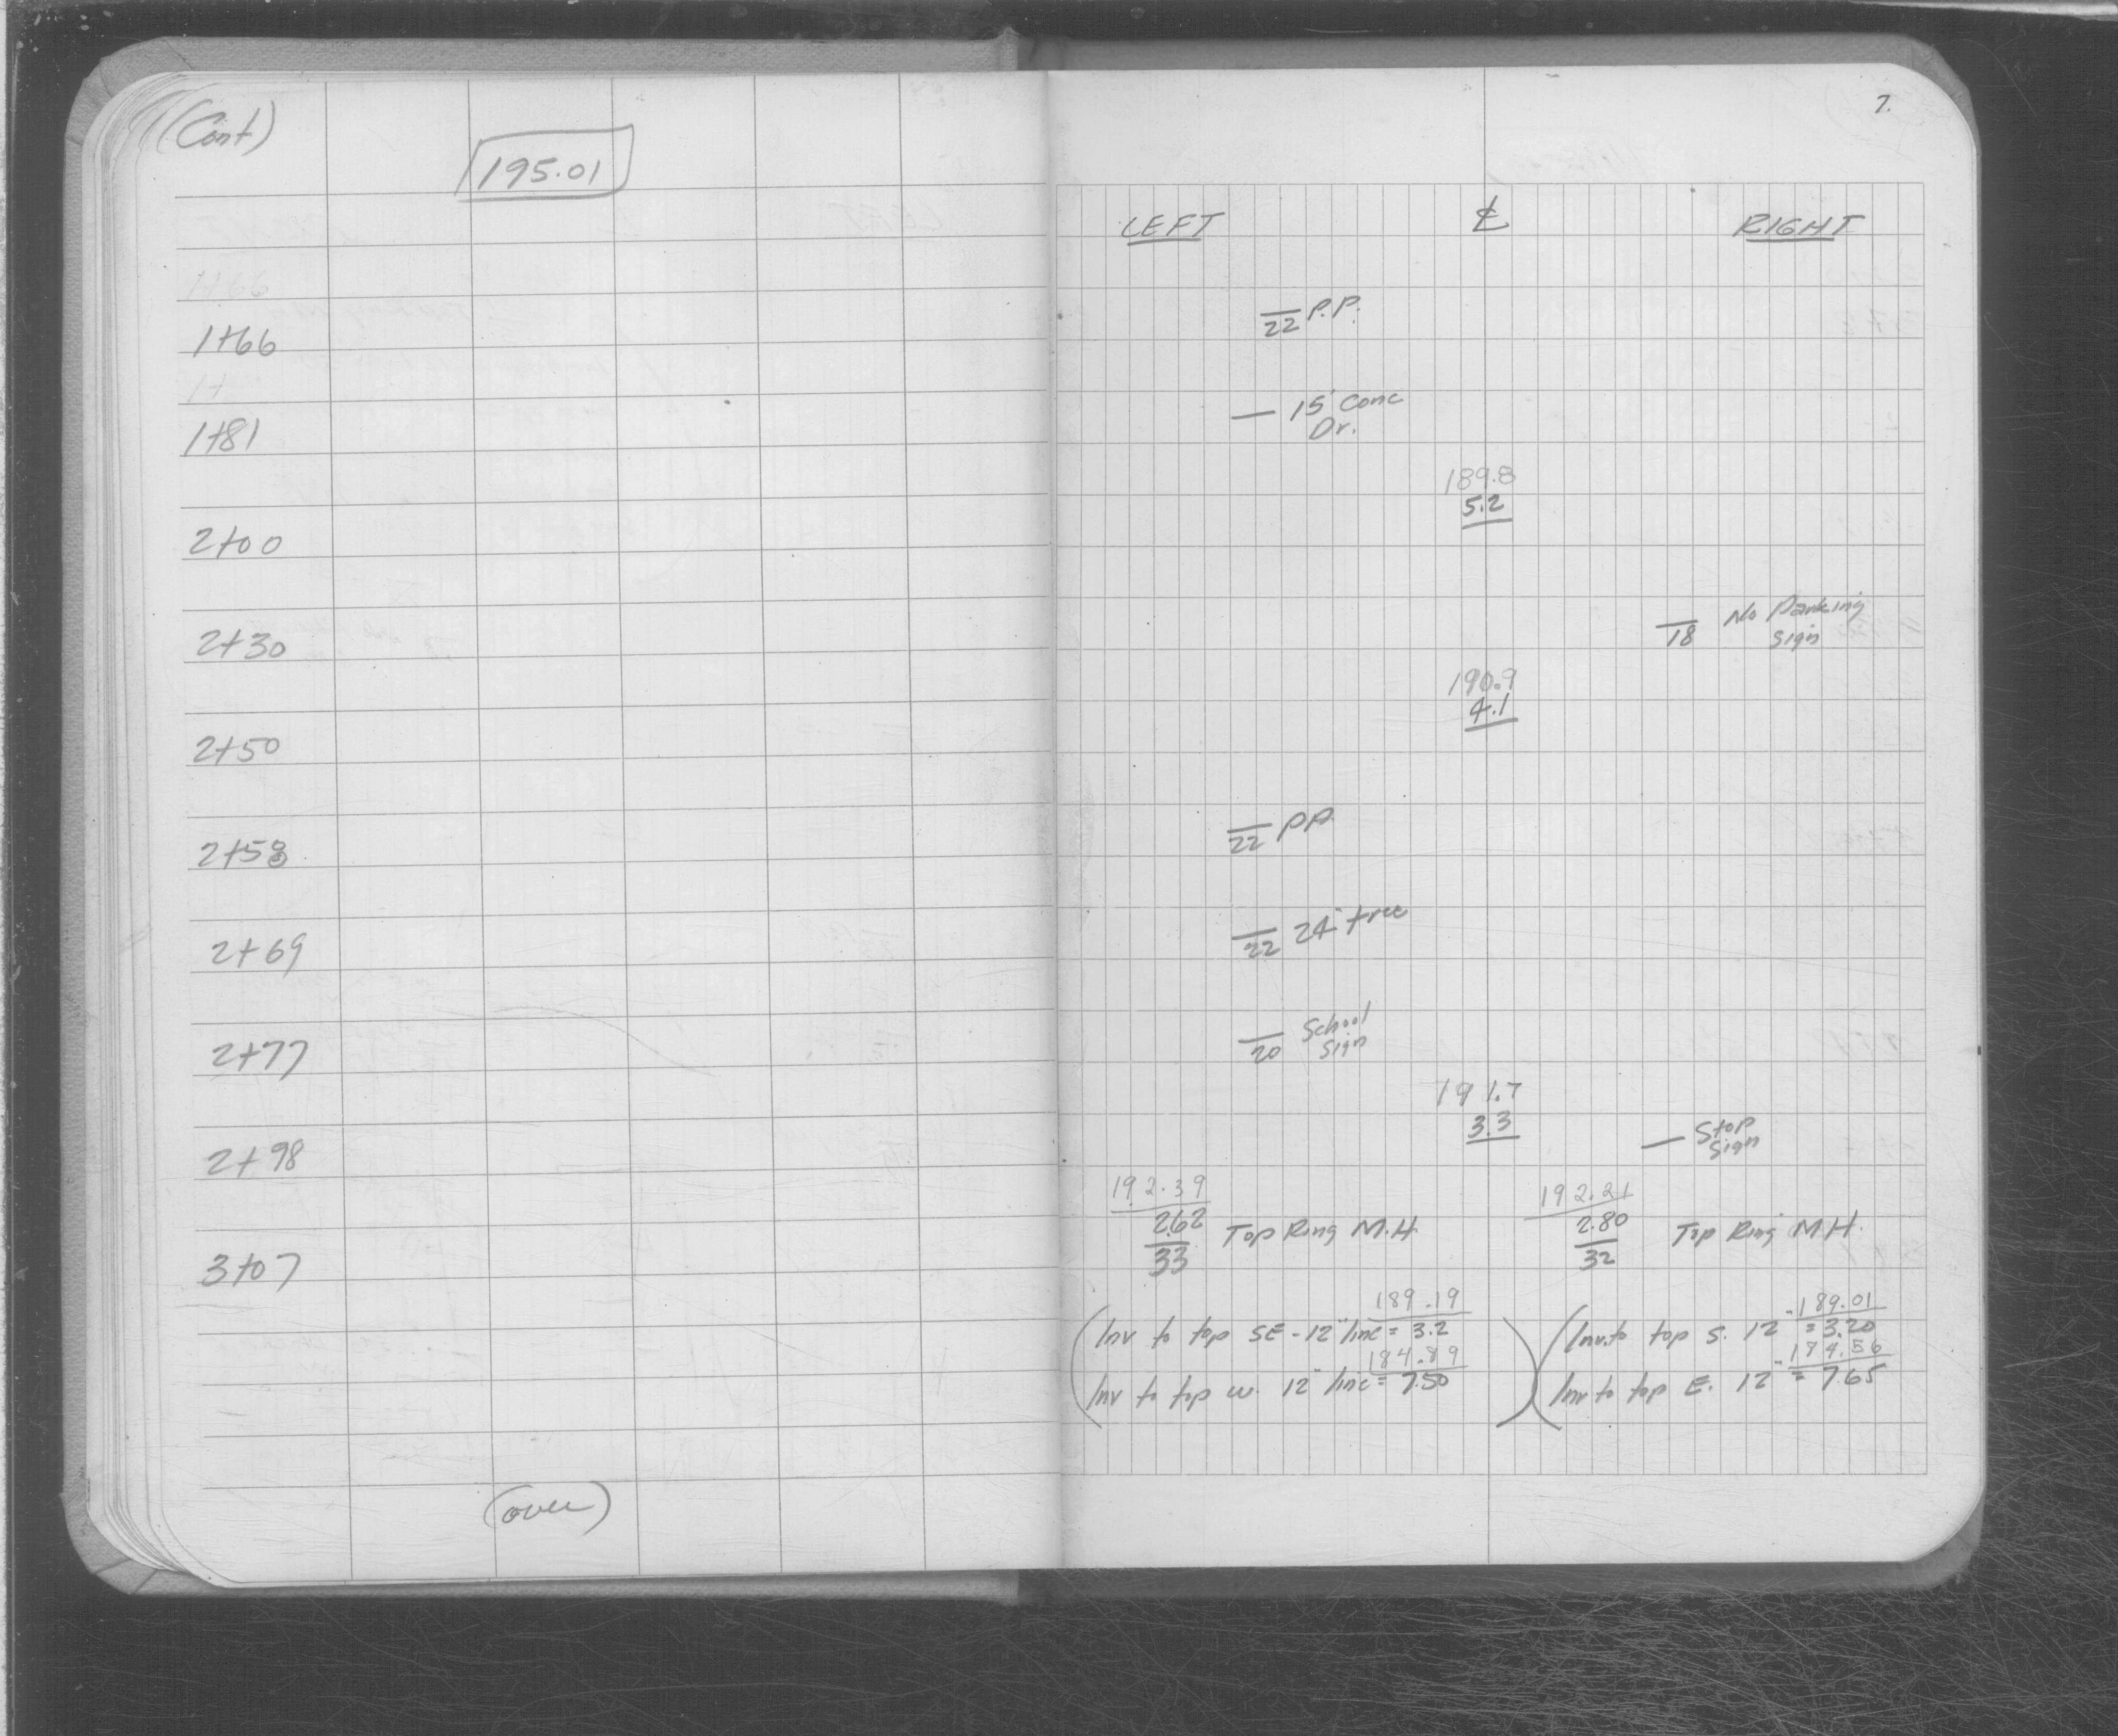 (Cont)
195.01
7.
LEFT ℄ RIGHT
1+66
22 P.P.
1+66
1+
15' Conc
Dr.
1+81
189.8
5.2
2+00
No Parking
18 Sign
2+30
190.9
4.1
2+50
22 P.P.
2+58
22 24" tree
2+69
School
20 Sign
2+77
191.7
3.3
Stop
Sign
2+98
192.39 192.21
2.62 Top Ring M.H. 2.80 Top Ring M.H.
33 32
3+07
189.19 189.01
(Inv to top SE-12" line = 3.2 (Inv. to top S. 12" = 3.20
184.89 184.56
Inv to top W. 12" line = 7.50) Inv to top E. 12" = 7.65
(over)